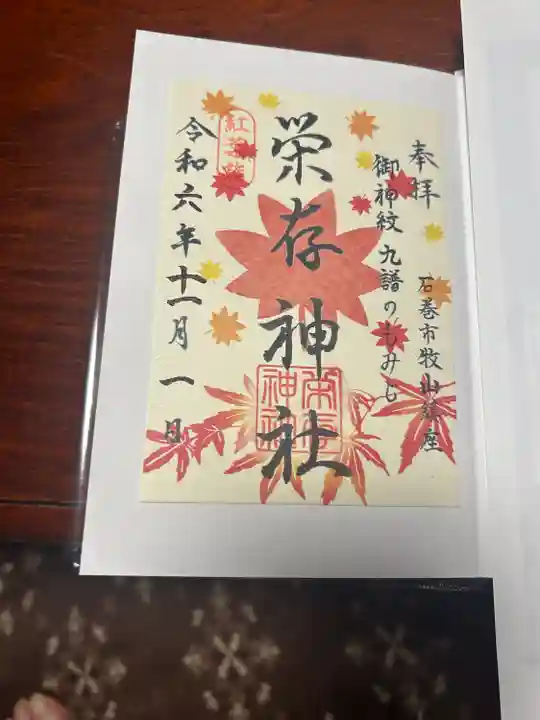 奉拝
石巻市牧山鎮座
御神紋 九譜のもみじ
栄存神社
栄存神社
令和六年十一月一日